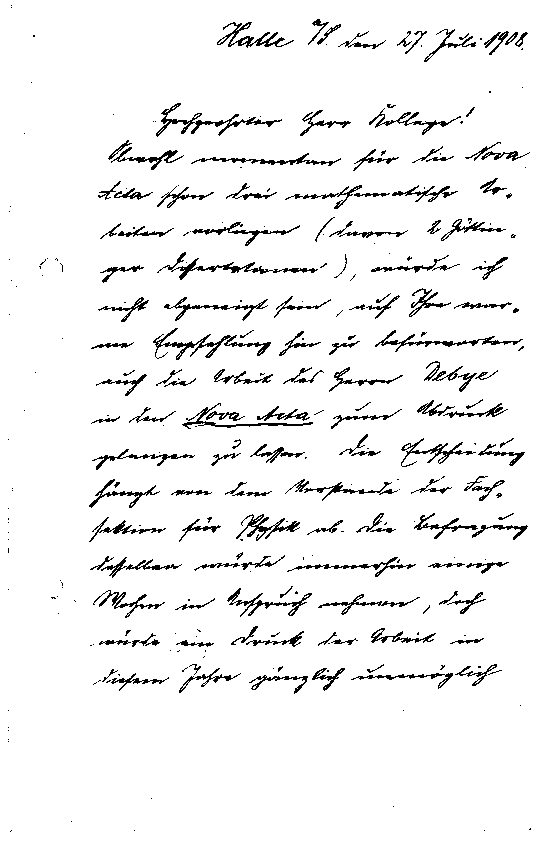 Halle a/S. den 27. Juli 1908.
Hochgeehrter Herr Kollege!
Obwohl momentan für die Nova
Acta schon drei mathematische Ar-
beiten vorliegen (davon 2 Göttin-
ger Dissertationen), würde ich
nicht abgeneigt sein, auf Ihre war-
me Empfehlung hin zu befürworten,
auch die Arbeit des Herrn Debye
in den Nova Acta zum Abdruck
gelangen zu lassen. Die Entscheidung
hängt von dem Vorstande der Fach-
sektion für Physik ab. Die Befragung
desselben würde immerhin einige
Wochen in Anspruch nehmen, doch
würde ein Druck der Arbeit in
diesem Jahre gänzlich unmöglich